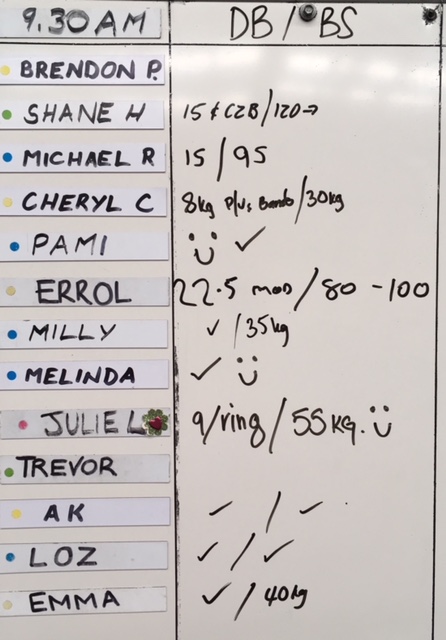 9.30 AM DB / BS
BRENDON P.
SHANE H 15 & C2B/120→
MICHAEL R 15/95
CHERYL C 8kg Plus Bands/30kg
PAMI ✓
ERROL 22.5 mod/80-100
MILLY ✓/35kg
MELINDA ✓
JULIE L 9/ring/55kg.
TREVOR
AK ✓ / ✓
LOZ ✓/✓
EMMA ✓/40kg